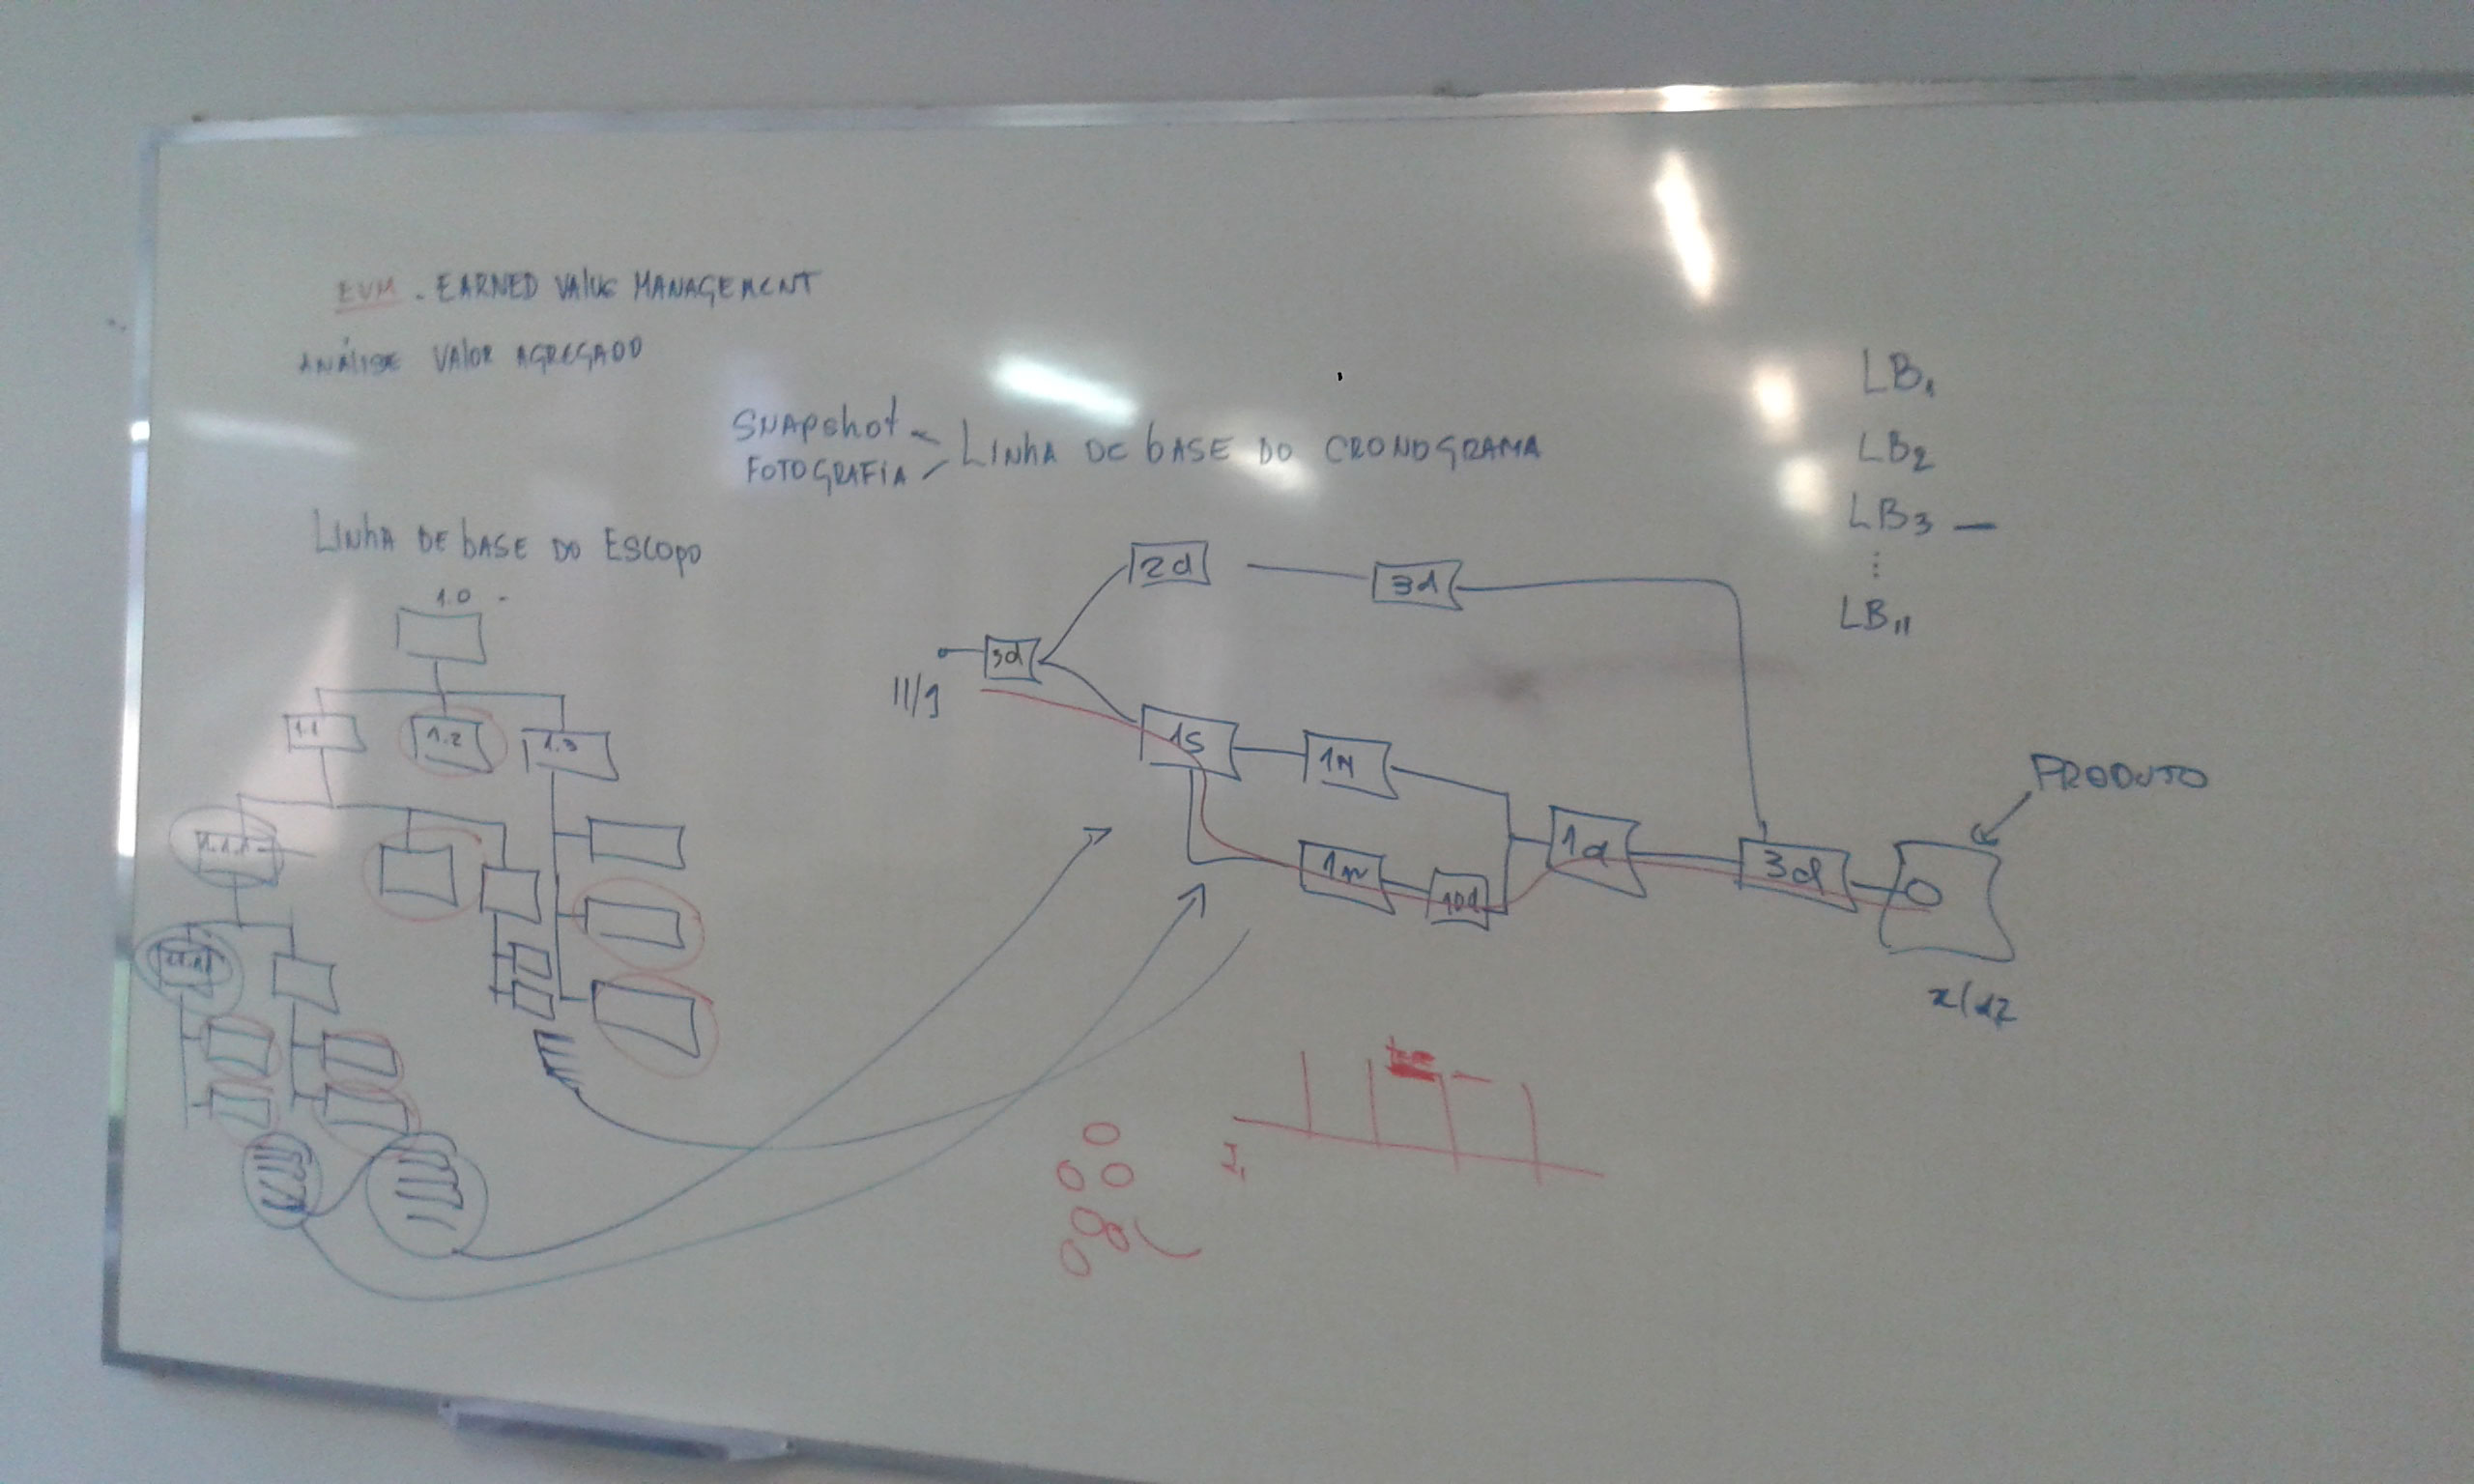 EVM - EARNED VALUE MANAGEMENT
ANÁLISE VALOR AGREGADO
SNAPSHOT
FOTOGRAFIA
LINHA DE BASE DO CRONOGRAMA
LB1
LB2
LB3 —
LB11
LINHA DE BASE DO ESCOPO
1.0
1.1
1.2
1.3
1.1.1
2d
3d
3d
11/9
1S
1M
1M
10d
1d
3d
PRODUTO